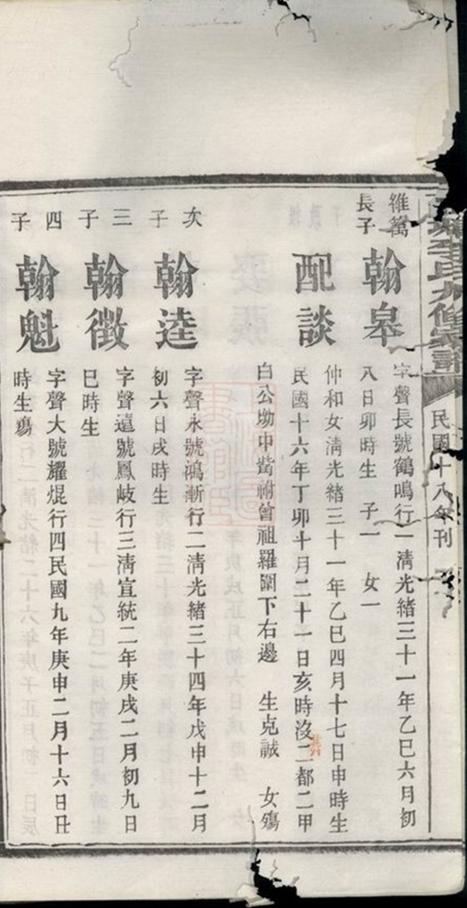 李氏九修宗譜
民國十八年刊
維篙長子
翰皋
字聲長號鶴鳴行一清光緒三十一年乙巳六月初
八日卯時生 子一 女一
配談
仲和女清光緒三十一年乙巳四月十七日申時生
民國十六年丁卯十月二十一日亥時沒二都二甲
白公坳中嵩祔曾祖羅圍下右邊 生克誠 女殤
次子
翰逵
字聲永號鴻漸行二清光緒三十四年戊申十二月
初六日戌時生
三子
翰徵
字聲遠號鳳岐行三清宣統二年庚戌二月初九日
巳時生
四子
翰魁
字聲大號耀焜行四民國九年庚申二月十六日丑
時生殤